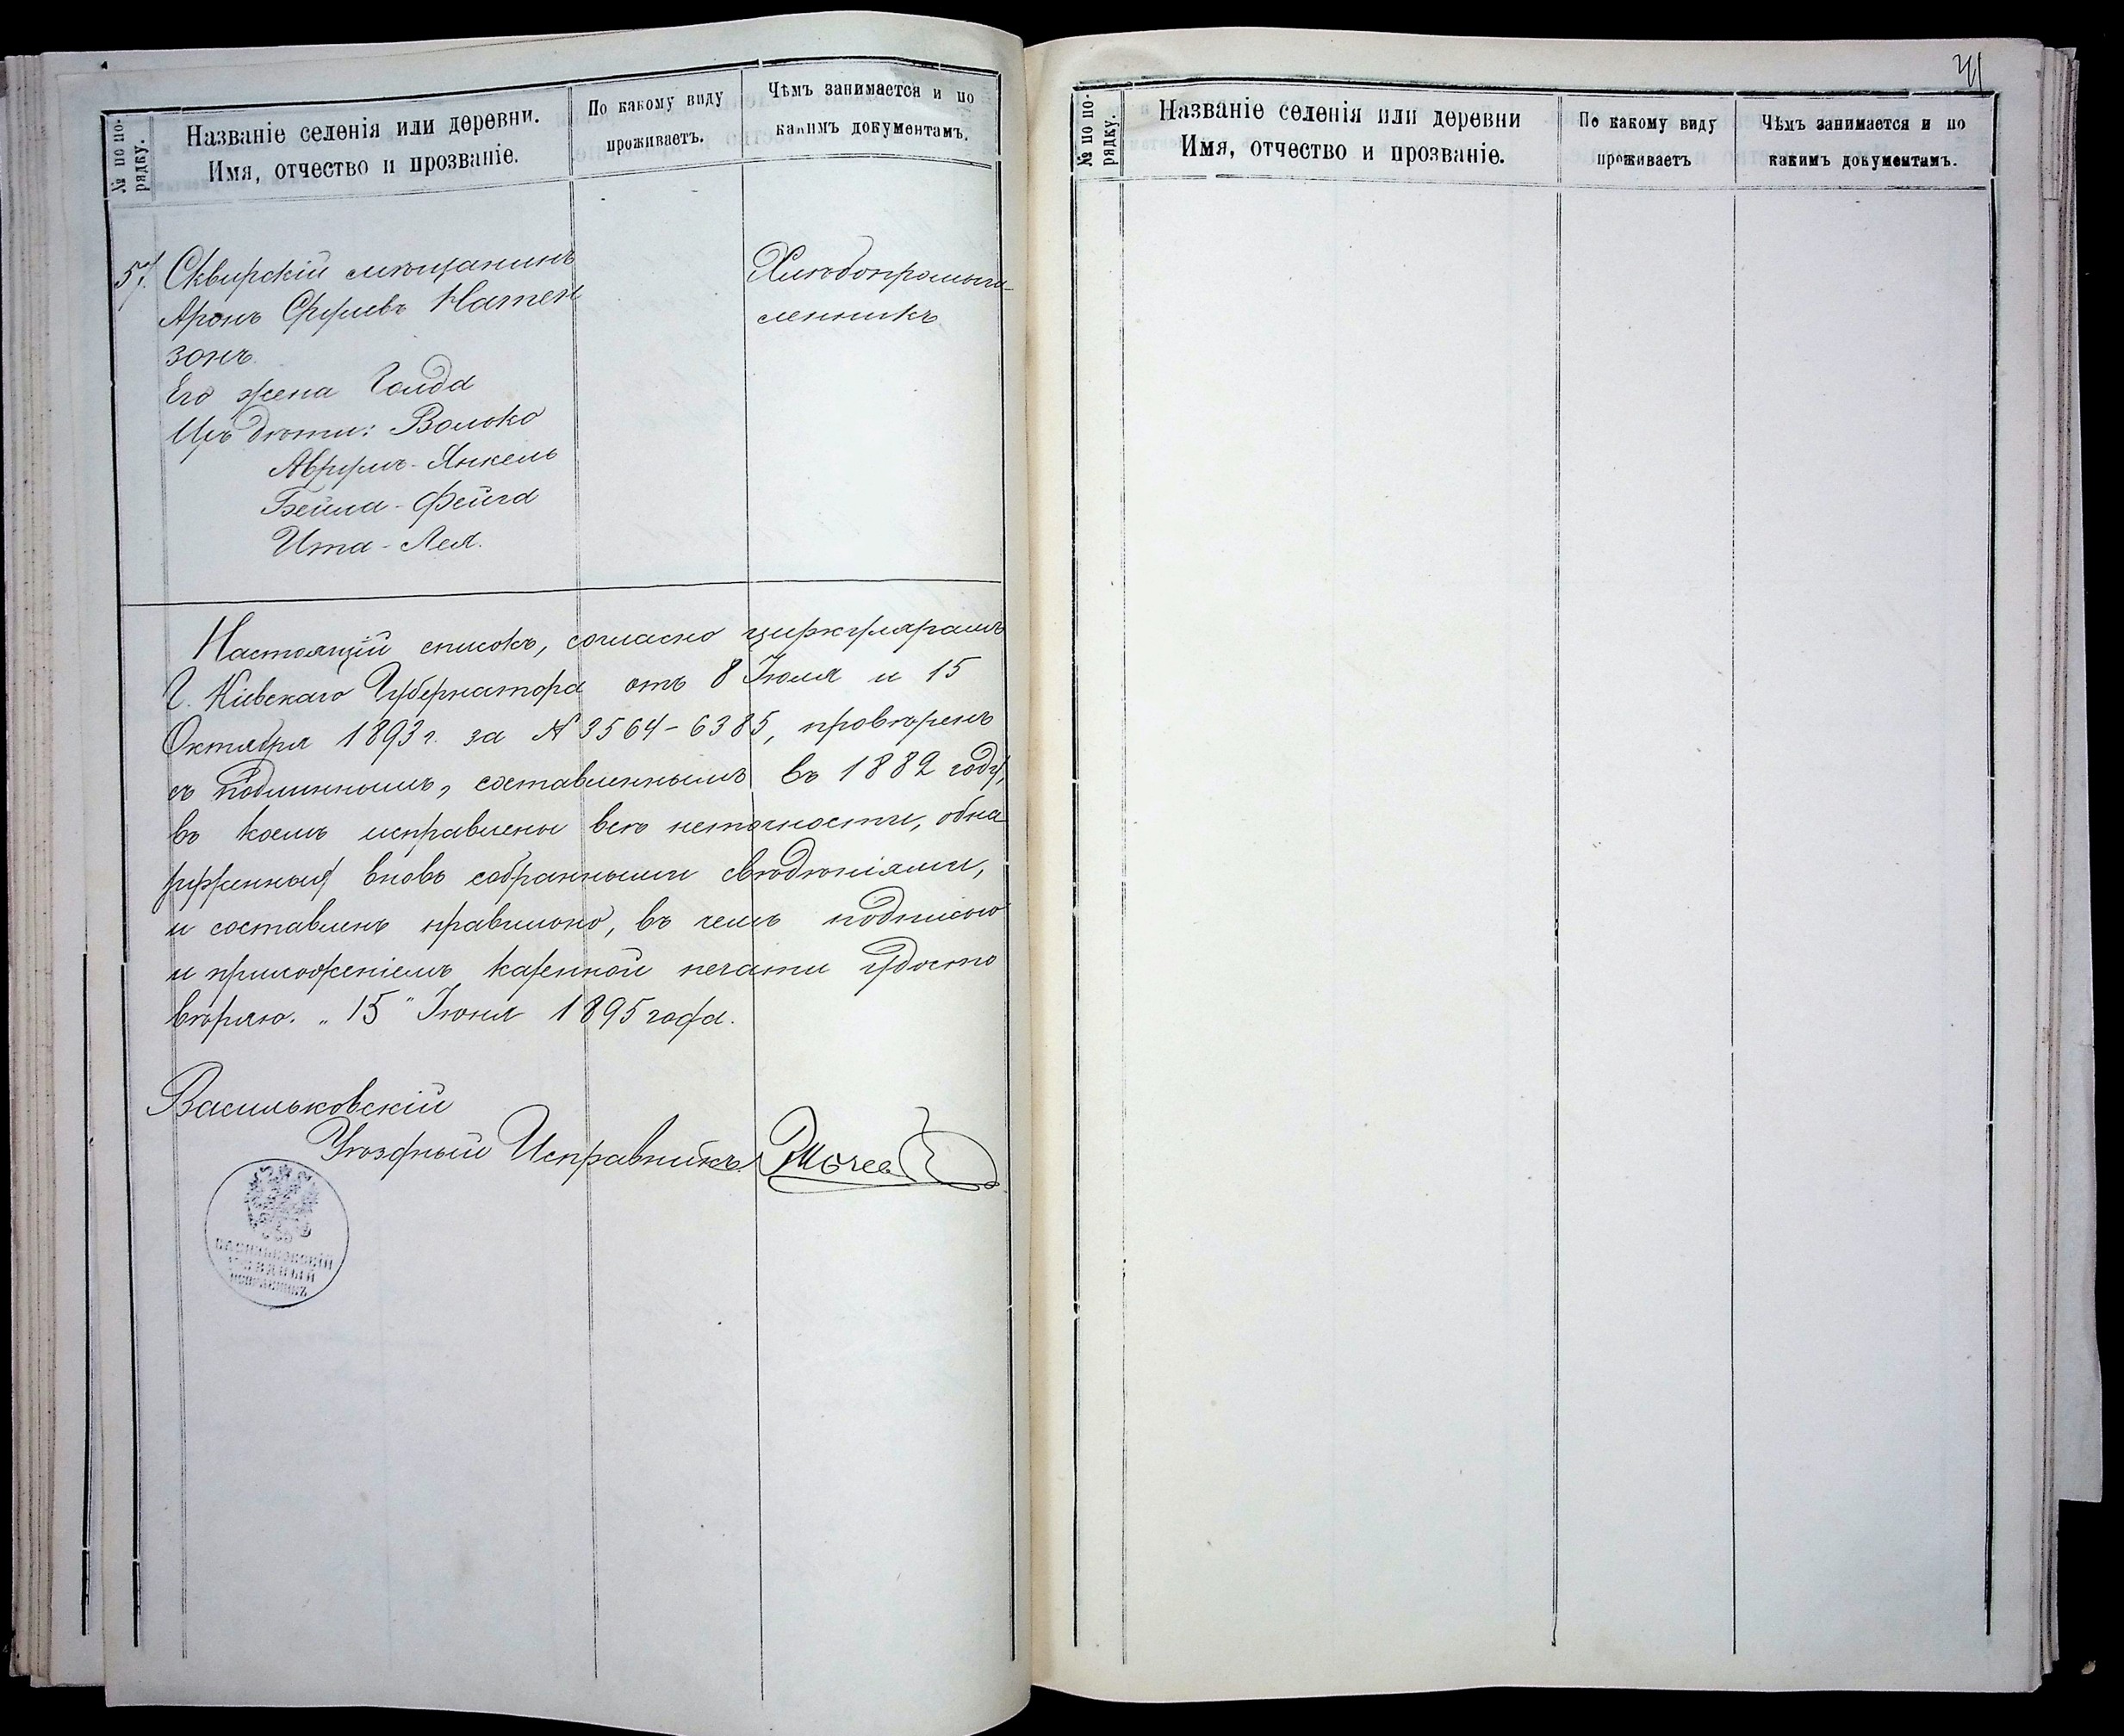 № по по-
рядку.
Названіе селенія или деревни.
Имя, отчество и прозваніе.
По какому виду
проживаетъ.
Чѣмъ занимается и по
какимъ документамъ.
57. Сквирскій мѣщанинъ
Аронъ Сруиевъ Натен
зонъ
Его жена Голда
Ихъ дѣти: Волько
Аврумъ-Янкель
Бейла-Фейга
Ита-Лея.
Хлѣбопромыш-
ленникъ
Настоящій списокъ, согласно циркулярамъ
Г. Кіевскаго Губернатора отъ 8 Іюля и 15
Октября 1893 г. за № 3564-6385, провѣренъ
съ подлиннымъ, составленнымъ въ 1882 году,
въ коемъ исправлены всѣ неточности, обна
руженныя вновь собранными свѣдѣніями,
и составленъ правильно, въ чемъ подписью
и приложеніемъ казенной печати удосто
вѣряю. „15" Іюня 1895 года.
Васильковскій
Уѣздный Исправникъ
ВАСИЛЬКОВСКІЙ
УѢЗДНЫЙ
ИСПРАВНИКЪ
41
№ по по-
рядку.
Названіе селенія или деревни
Имя, отчество и прозваніе.
По какому виду
проживаетъ
Чѣмъ занимается и по
какимъ документамъ.